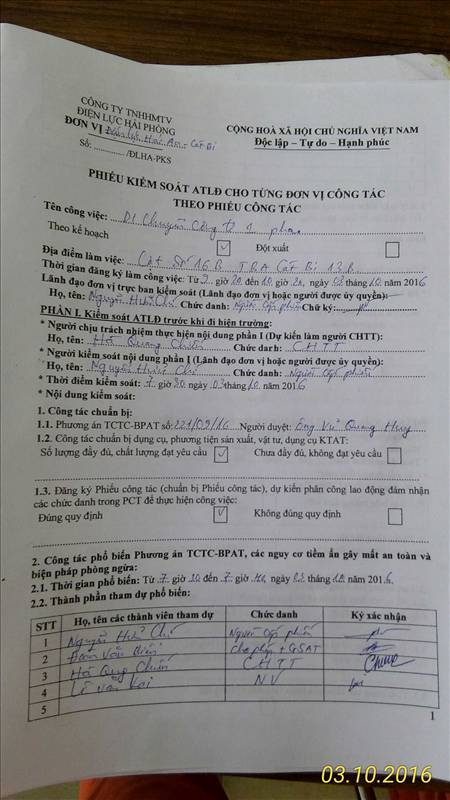 CÔNG TY TNHHMTV
ĐIỆN LỰC HẢI PHÒNG
ĐƠN VỊ Điện lực Hải An - Cát Bi
Số: ............../ĐLHA-PKS
CỘNG HOÀ XÃ HỘI CHỦ NGHĨA VIỆT NAM
Độc lập – Tự do – Hạnh phúc
PHIẾU KIỂM SOÁT ATLĐ CHO TỪNG ĐƠN VỊ CÔNG TÁC
THEO PHIẾU CÔNG TÁC
Tên công việc: Di chuyển công tơ 1 pha
Theo kế hoạch ✓ Đột xuất
Địa điểm làm việc: Cột số 16B TBA Cát Bi 13B
Thời gian đăng ký làm công việc: Từ giờ đến giờ ngày tháng 10 năm 2016
Lãnh đạo đơn vị trực ban kiểm soát (Lãnh đạo đơn vị hoặc người được ủy quyền):
Họ, tên: Nguyễn Hữu Chức danh: Người cấp phiếu Chữ ký:
PHẦN I. Kiểm soát ATLĐ trước khi đi hiện trường:
* Người chịu trách nhiệm thực hiện nội dung phần I (Dự kiến làm người CHTT):
Họ, tên: Hồ Quang Chiến Chức danh: CHTT
* Người kiểm soát nội dung phần I (Lãnh đạo đơn vị hoặc người được ủy quyền):
Họ, tên: Nguyễn Hữu Chức danh: Người cấp phiếu
* Thời điểm kiểm soát: 7 giờ 30 ngày 03 tháng 10 năm 2016
* Nội dung kiểm soát:
1. Công tác chuẩn bị:
1.1. Phương án TCTC-BPAT số: 221/09/16 Người duyệt: Ông Vũ Quang Huy
1.2. Công tác chuẩn bị dụng cụ, phương tiện sản xuất, vật tư, dụng cụ KTAT:
Số lượng đầy đủ, chất lượng đạt yêu cầu ✓ Chưa đầy đủ, không đạt yêu cầu
1.3. Đăng ký Phiếu công tác (chuẩn bị Phiếu công tác), dự kiến phân công lao động đảm nhận
các chức danh trong PCT để thực hiện công việc:
Đúng quy định ✓ Không đúng quy định
2. Công tác phổ biến Phương án TCTC-BPAT, các nguy cơ tiềm ẩn gây mất an toàn và
biện pháp phòng ngừa:
2.1. Thời gian phổ biến: Từ 7 giờ 30 đến 7 giờ 40, ngày 03 tháng 10 năm 2016
2.2. Thành phần tham dự phổ biến:
STT Họ, tên các thành viên tham dự Chức danh Ký xác nhận
1 Nguyễn Hữu Người cấp phiếu
2 Đoàn Văn Biển Cho phép + GSAT
3 Hồ Quang Chiến CHTT
4 Lê Văn NV
5
1
03.10.2016